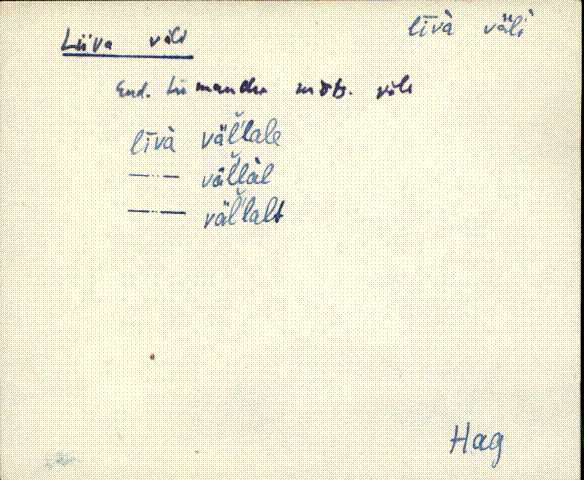 Liiva väli līvà väli
End. Liimandu mõts. väli
līvà väl̆lale
—··— väl̆làl
—··— väl̆lalt
Hag